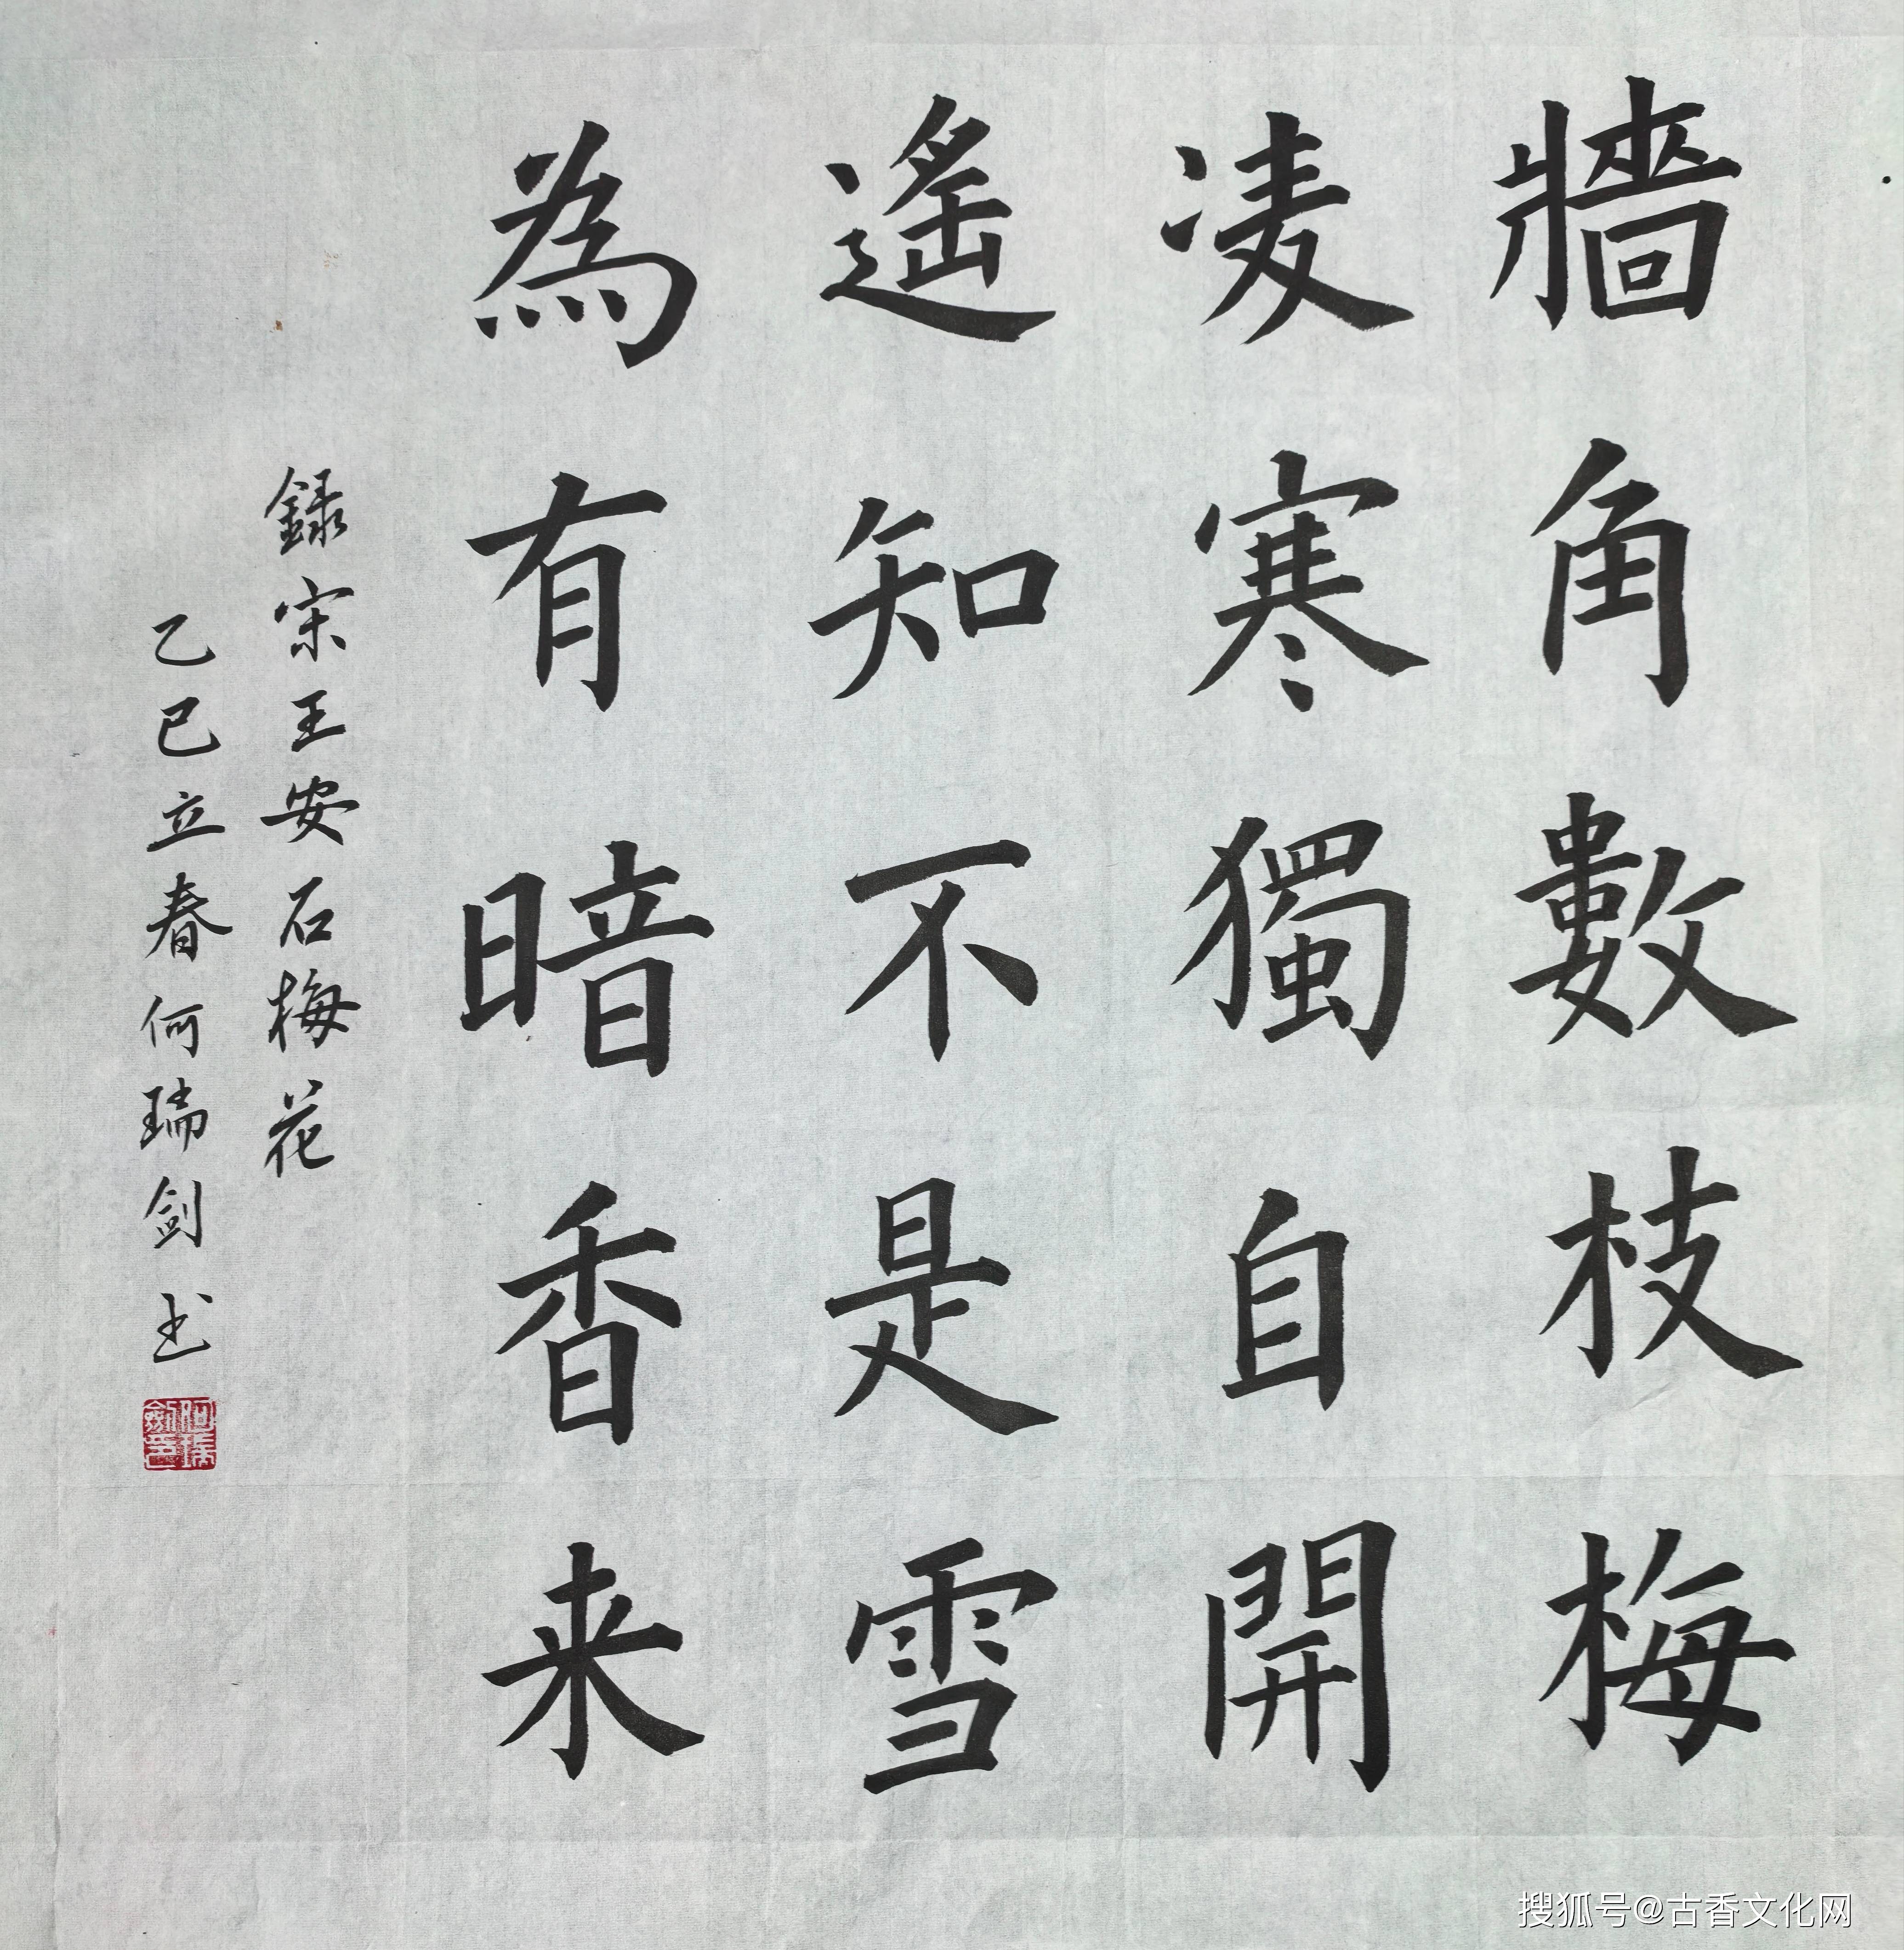 牆角數枝梅
凌寒獨自開
遙知不是雪
為有暗香来
録宋王安石梅花
乙巳立春何瑞剑书
何瑞劍印
搜狐号@古香文化网